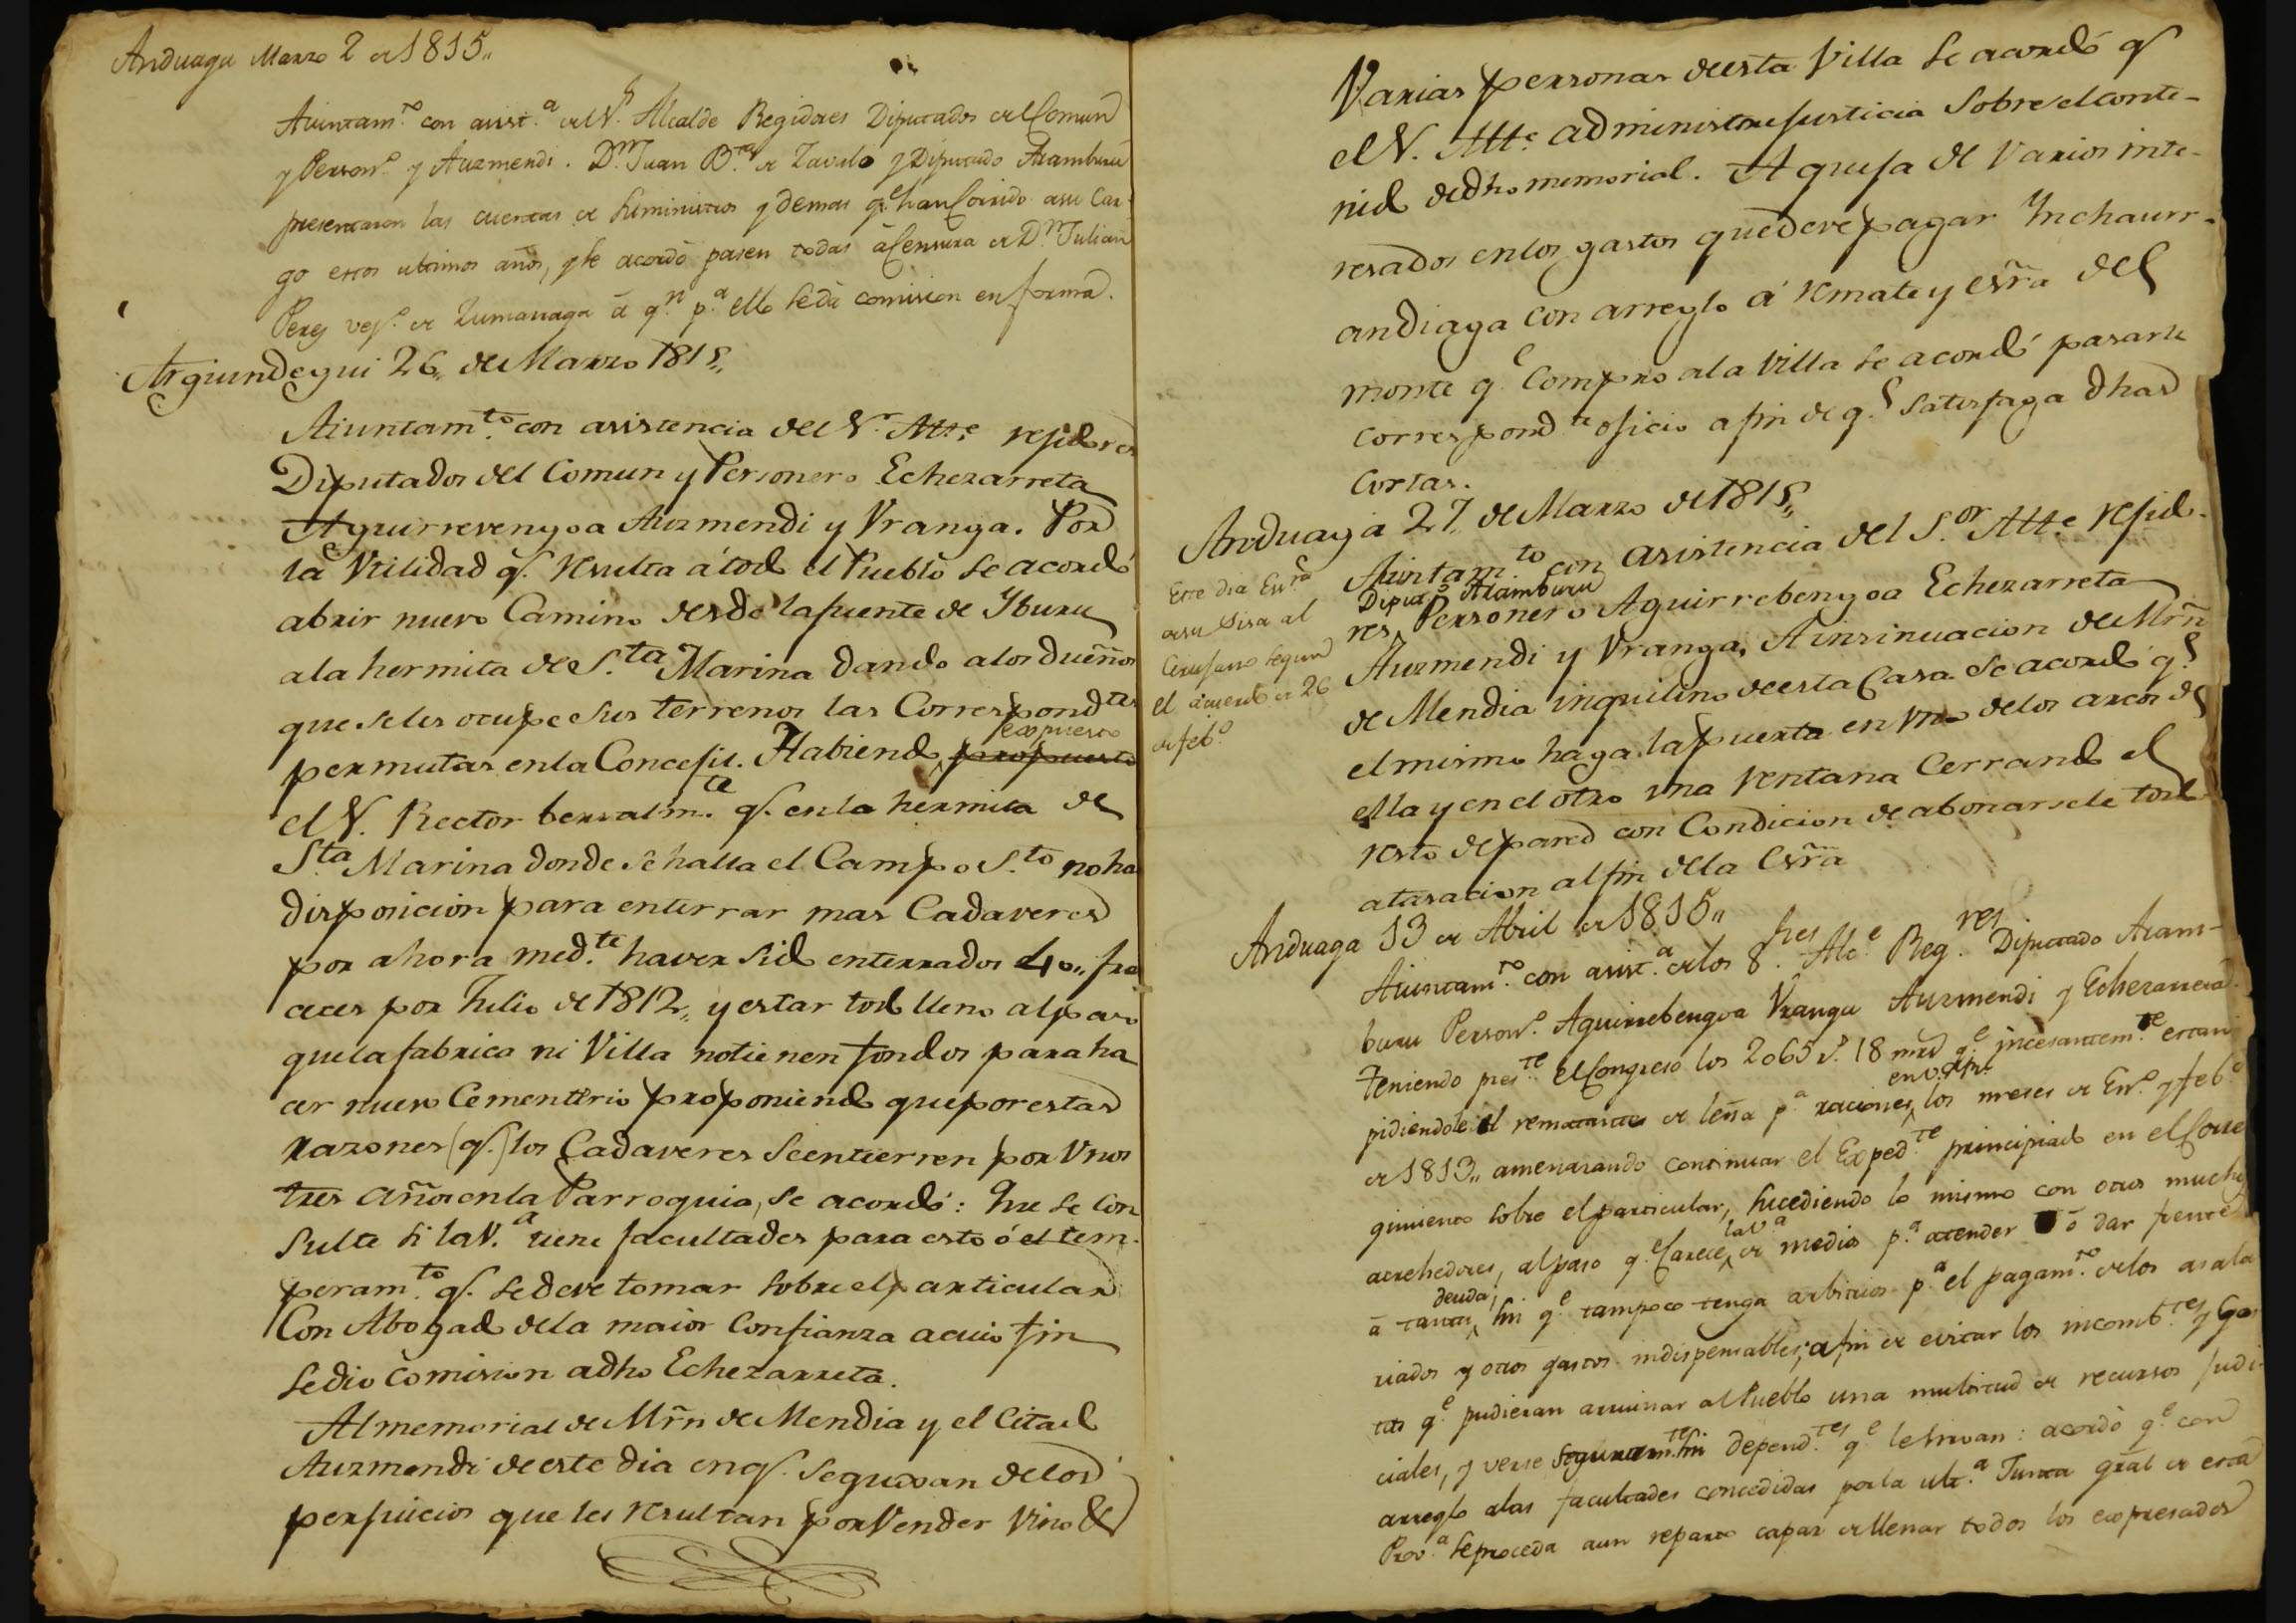 Anduaga Marzo 2 de 1815,,
Aiuntam.to con asist.a del S.r Alcalde Regidores Diputados del Comun
y Person.o y Auzmendi. D.n Juan B.ta de Zavalo y Diputado Aramburu
presentaron las cuentas de Suministros y demas q.e han Corrido a su Car-
go estos ultimos años, y se acordò pasen todas à Censura de D.n Julian
Perez vez.o de Zumarraga à q.n p.a ello se dà comision en forma.
Arguindegui 26,, de Marzo 1815,,
Aiuntam.to con asistencia del S.r Alt.e rejidores
Diputados del Comun y Personero Echezarreta
Aguirrevengoa Auzmendi y Vranga. Por
la Vtilidad q.e resulta á todo el Pueblo se acordó
abrir nuevo Camino desde la puente de Yburu
a la hermita de S.ta Marina dando a los dueños
que se les ocupe sus terrenos las Correspond.tes
permutas en la Concejil. Habiendo propuesto
expuesto
el S. Rector verbalm.te q.e en la hermita de
S.ta Marina donde se halla el Campo S.to no ha
disposicion para enterrar mas Cadaveres
por ahora med.te haver sido enterrados 40,, fra
aces por Julio de 1812,, y estar todo lleno al paso
que la fabrica ni Villa no tienen fondos para ha
cer nuevo Cementerio proponiendo que por estas
razones (q.e) los Cadaveres se entierren por Vnos
tres años en la Parroquia, se acordó: Que se Con
sulte si la V.a tiene facultades para esto ó el tem-
peram.to q.e se deve tomar sobre el particular
Con Abogado de la maior Confianza a cuio fin
se dio Comision a dho Echezarreta.
Al memorial de Mrñ de Mendia y el Citado
Auzmendi de este dia en q.e se quexan de los
perjuicios que les resultan por Vender Vino de
Varias personas de esta Villa se acordó q.e
el S. Alt.e administre justicia sobre el conte-
nido de dho memorial. A queja de Varios inte-
resados en los gastos que deve pagar Ynchaurr-
andiaga con arreglo á remate y esr̃a del
monte q.e Compro a la Villa se acordó pasarle
correspond.te oficio a fin de q.e satisfaga dhas
Cortas.
Anduaga 27,, de Marzo de 1815,,
Este dia En.ro
a su Sisa al
Cirujano segun
el acuerdo de 26
de feb.o
Aiuntam.to con asistencia del S.or Alt.e rejido-
Diput.o Aramburu
res, Personero Aguirrebengoa Echezarreta
Auzmendi y Vranga. A insinuacion de Mrñ
de Mendia inquilino de esta Casa se acordó q.e
el mismo haga la puerta en Vno de los arcos de
ella y en el otro una Ventana Cerrando el
resto de pared con Condicion de abonarsele todo
a tasacion al fin de la Esr̃a
Anduaga 13 de Abril de 1815,,
Aiuntam.to con asist.a de los S.res Alc.e Reg.res Diputado Aram-
buru Person.o Aguirrebengoa Vranga Auzmendi y Echezarreta.
Teniendo pres.te el Congreso los 2065 r.s 18 mrs q.e incesantem.te estan
pidiendole el rematante de leña p.a raciones, los meses de En.o y feb.o
de 1813,, amenazando continuar el Exped.te principiado en el Corre
gimiento sobre el particular, sucediendo lo mismo con otros muchos
acrehedores, al paso q.e Carece, de medios p.a atender ó dar frente
la V.a
à tanta, sin q.e tampoco tenga arbitrios p.a el pagam.to de los asala
deuda,
riados y otros gastos indispensables; a fin de evitar los incomb.tes y Gas
tos q.e pudieran arruinar al Pueblo una multitud de recursos Judi-
ciales, y verse seguram.te sin depend.tes q.e le sirvan: acordò q.e con
arreglo a las facultades concedidas por la ult.a Junta gràl de esta
Prov.a se proceda a un reparto capaz de llenar todos los expresados